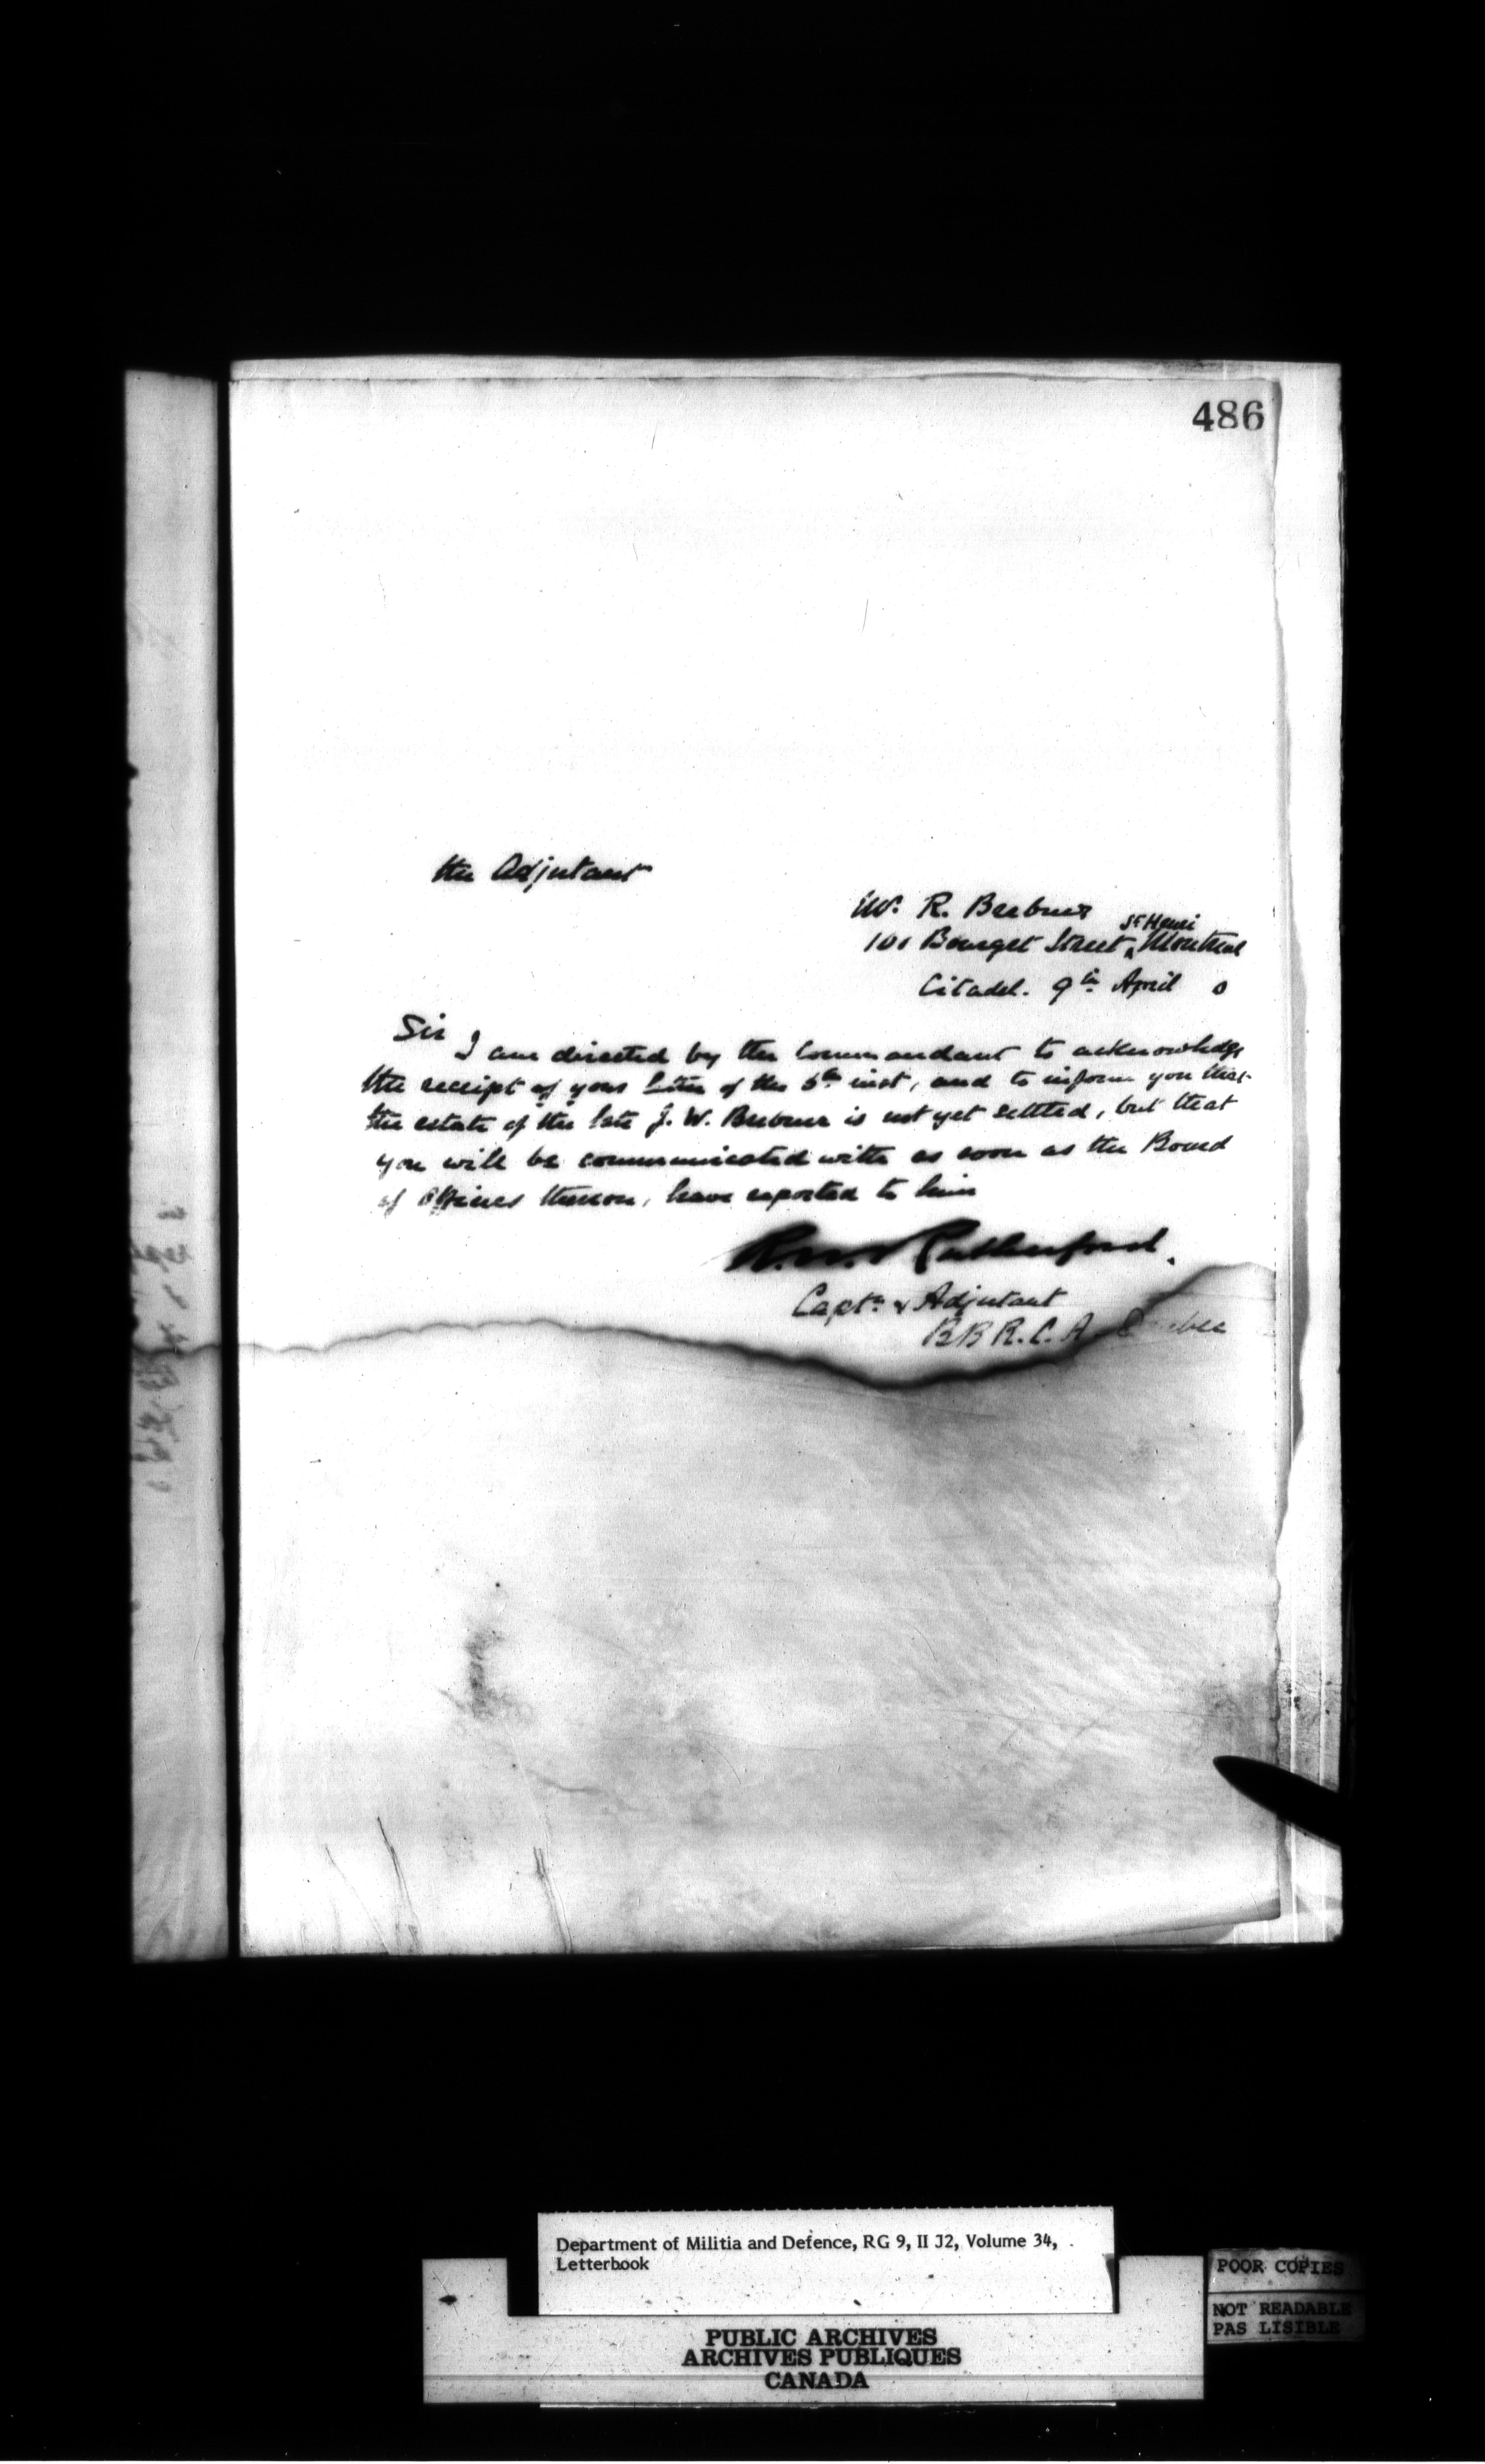 486
the Adjutant
W. R. Brebner
St Henri
101 Bourget Street, Montreal
Citadel. 9th April 0
Sir
I am directed by the Commandant to acknowledge
the receipt of your letter of the 5th inst, and to inform you that
the estate of the late J. W. Brebner is not yet settled, but that
you will be communicated with as soon as the Board
of Officers thereon, have reported to him
Rutherford.
Capt. & Adjutant
BB R.C.A. Quebec
Department of Militia and Defence, RG 9, II J2, Volume 34,
Letterbook
POOR COPIES
NOT READABLE
PAS LISIBLE
PUBLIC ARCHIVES
ARCHIVES PUBLIQUES
CANADA